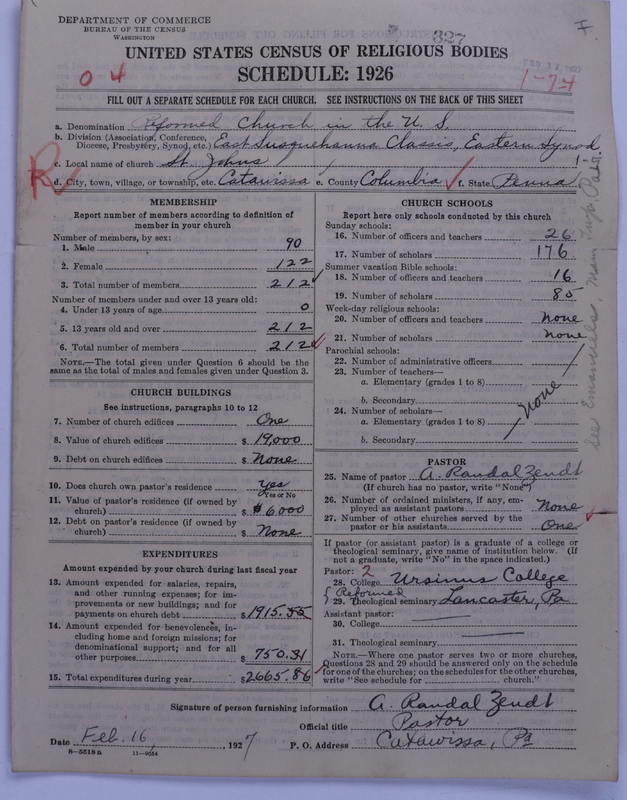 DEPARTMENT OF COMMERCE
BUREAU OF THE CENSUS
WASHINGTON
327
I
UNITED STATES CENSUS OF RELIGIOUS BODIES
SCHEDULE: 1926
0 4
1-7-4
FILL OUT A SEPARATE SCHEDULE FOR EACH CHURCH. SEE INSTRUCTIONS ON THE BACK OF THIS SHEET
a. Denomination Reformed Church in the U. S.
b. Division (Association, Conference, Diocese, Presbytery, Synod, etc.) East Susquehanna Classis, Eastern Synod
c. Local name of church St. Johns
R
d. City, town, village, or township, etc. Catawissa e. County Columbia f. State Penna
MEMBERSHIP
Report number of members according to definition of
member in your church
Number of members, by sex:
1. Male 90
2. Female 122
3. Total number of members 212
Number of members under and over 13 years old:
4. Under 13 years of age 0
5. 13 years old and over 212
6. Total number of members 212
NOTE.—The total given under Question 6 should be the
same as the total of males and females given under Question 3.
CHURCH BUILDINGS
See instructions, paragraphs 10 to 12
7. Number of church edifices One
8. Value of church edifices $ 19,000
9. Debt on church edifices $ None
10. Does church own pastor's residence Yes
Yes or No
11. Value of pastor's residence (if owned by
church) $ 6,000
12. Debt on pastor's residence (if owned by
church) $ None
EXPENDITURES
Amount expended by your church during last fiscal year
13. Amount expended for salaries, repairs,
and other running expenses; for im-
provements or new buildings; and for
payments on church debt $ 1915.55
14. Amount expended for benevolences, in-
cluding home and foreign missions; for
denominational support; and for all
other purposes $ 750.31
15. Total expenditures during year $ 2665.86
CHURCH SCHOOLS
Report here only schools conducted by this church
Sunday schools:
16. Number of officers and teachers 26
17. Number of scholars 176
Summer vacation Bible schools:
18. Number of officers and teachers 16
19. Number of scholars 85
Week-day religious schools:
20. Number of officers and teachers None
21. Number of scholars None
Parochial schools:
22. Number of administrative officers
23. Number of teachers—
a. Elementary (grades 1 to 8)
b. Secondary
24. Number of scholars—
a. Elementary (grades 1 to 8)
b. Secondary
None
PASTOR
25. Name of pastor A. Randal Zendt
(If church has no pastor, write "None")
26. Number of ordained ministers, if any, em-
ployed as assistant pastors None
27. Number of other churches served by the
pastor or his assistants One
If pastor (or assistant pastor) is a graduate of a college or
theological seminary, give name of institution below. (If
not a graduate, write "No" in the space indicated.)
Pastor: 2
28. College Ursinus College
Reformed
29. Theological seminary Lancaster, Pa
Assistant pastor:
30. College
31. Theological seminary
NOTE.—Where one pastor serves two or more churches,
Questions 28 and 29 should be answered only on the schedule
for one of the churches; on the schedules for the other churches,
write "See schedule for church."
Signature of person furnishing information A. Randal Zendt
Official title Pastor
Date Feb. 16, 1927 P. O. Address Catawissa, Pa
8-5518 a 11-9054